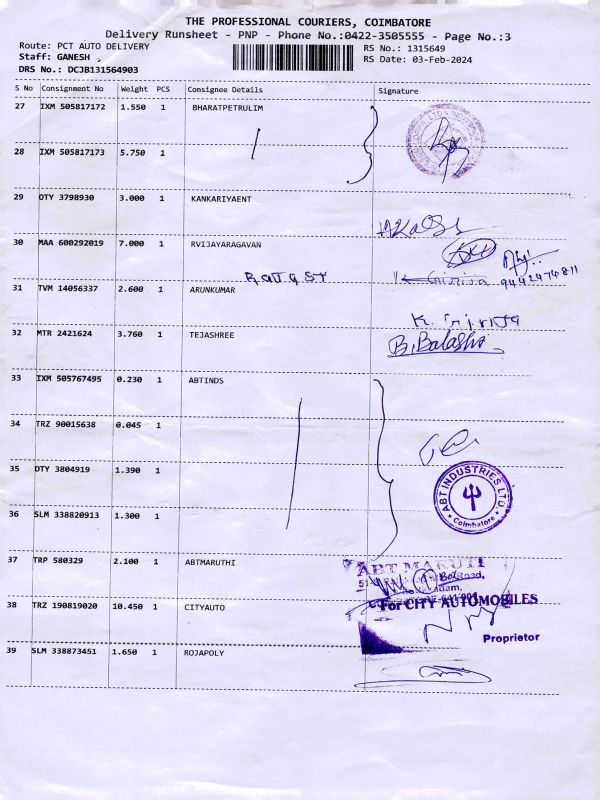 THE PROFESSIONAL COURIERS, COIMBATORE
Delivery Runsheet - PNP - Phone No.:0422-3505555 - Page No.:3
Route: PCT AUTO DELIVERY RS No.: 1315649
Staff: GANESH , RS Date: 03-Feb-2024
DRS No.: DCJB131564903
S No Consignment No Weight PCS Consignee Details Signature
27 IXM 505817172 1.550 1 BHARATPETRULIM
28 IXM 505817173 5.750 1
29 OTY 3798930 3.000 1 KANKARIYAENT
30 MAA 600292019 7.000 1 RVIJAYARAGAVAN
K Girija 9442474811
31 TVM 14056337 2.600 1 ARUNKUMAR
K Girija
32 MTR 2421624 3.760 1 TEJASHREE
B. Balasha
33 IXM 505767495 0.230 1 ABTINDS
34 TRZ 90015638 0.045 1
35 OTY 3804919 1.390 1
ABT INDUSTRIES LTD.
Coimbatore
36 SLM 338820913 1.300 1
37 TRP 580329 2.100 1 ABTMARUTHI
ABT MARUTI
38 TRZ 190819020 10.450 1 CITYAUTO
For CITY AUTOMOBILES
Proprietor
39 SLM 338873451 1.650 1 ROJAPOLY